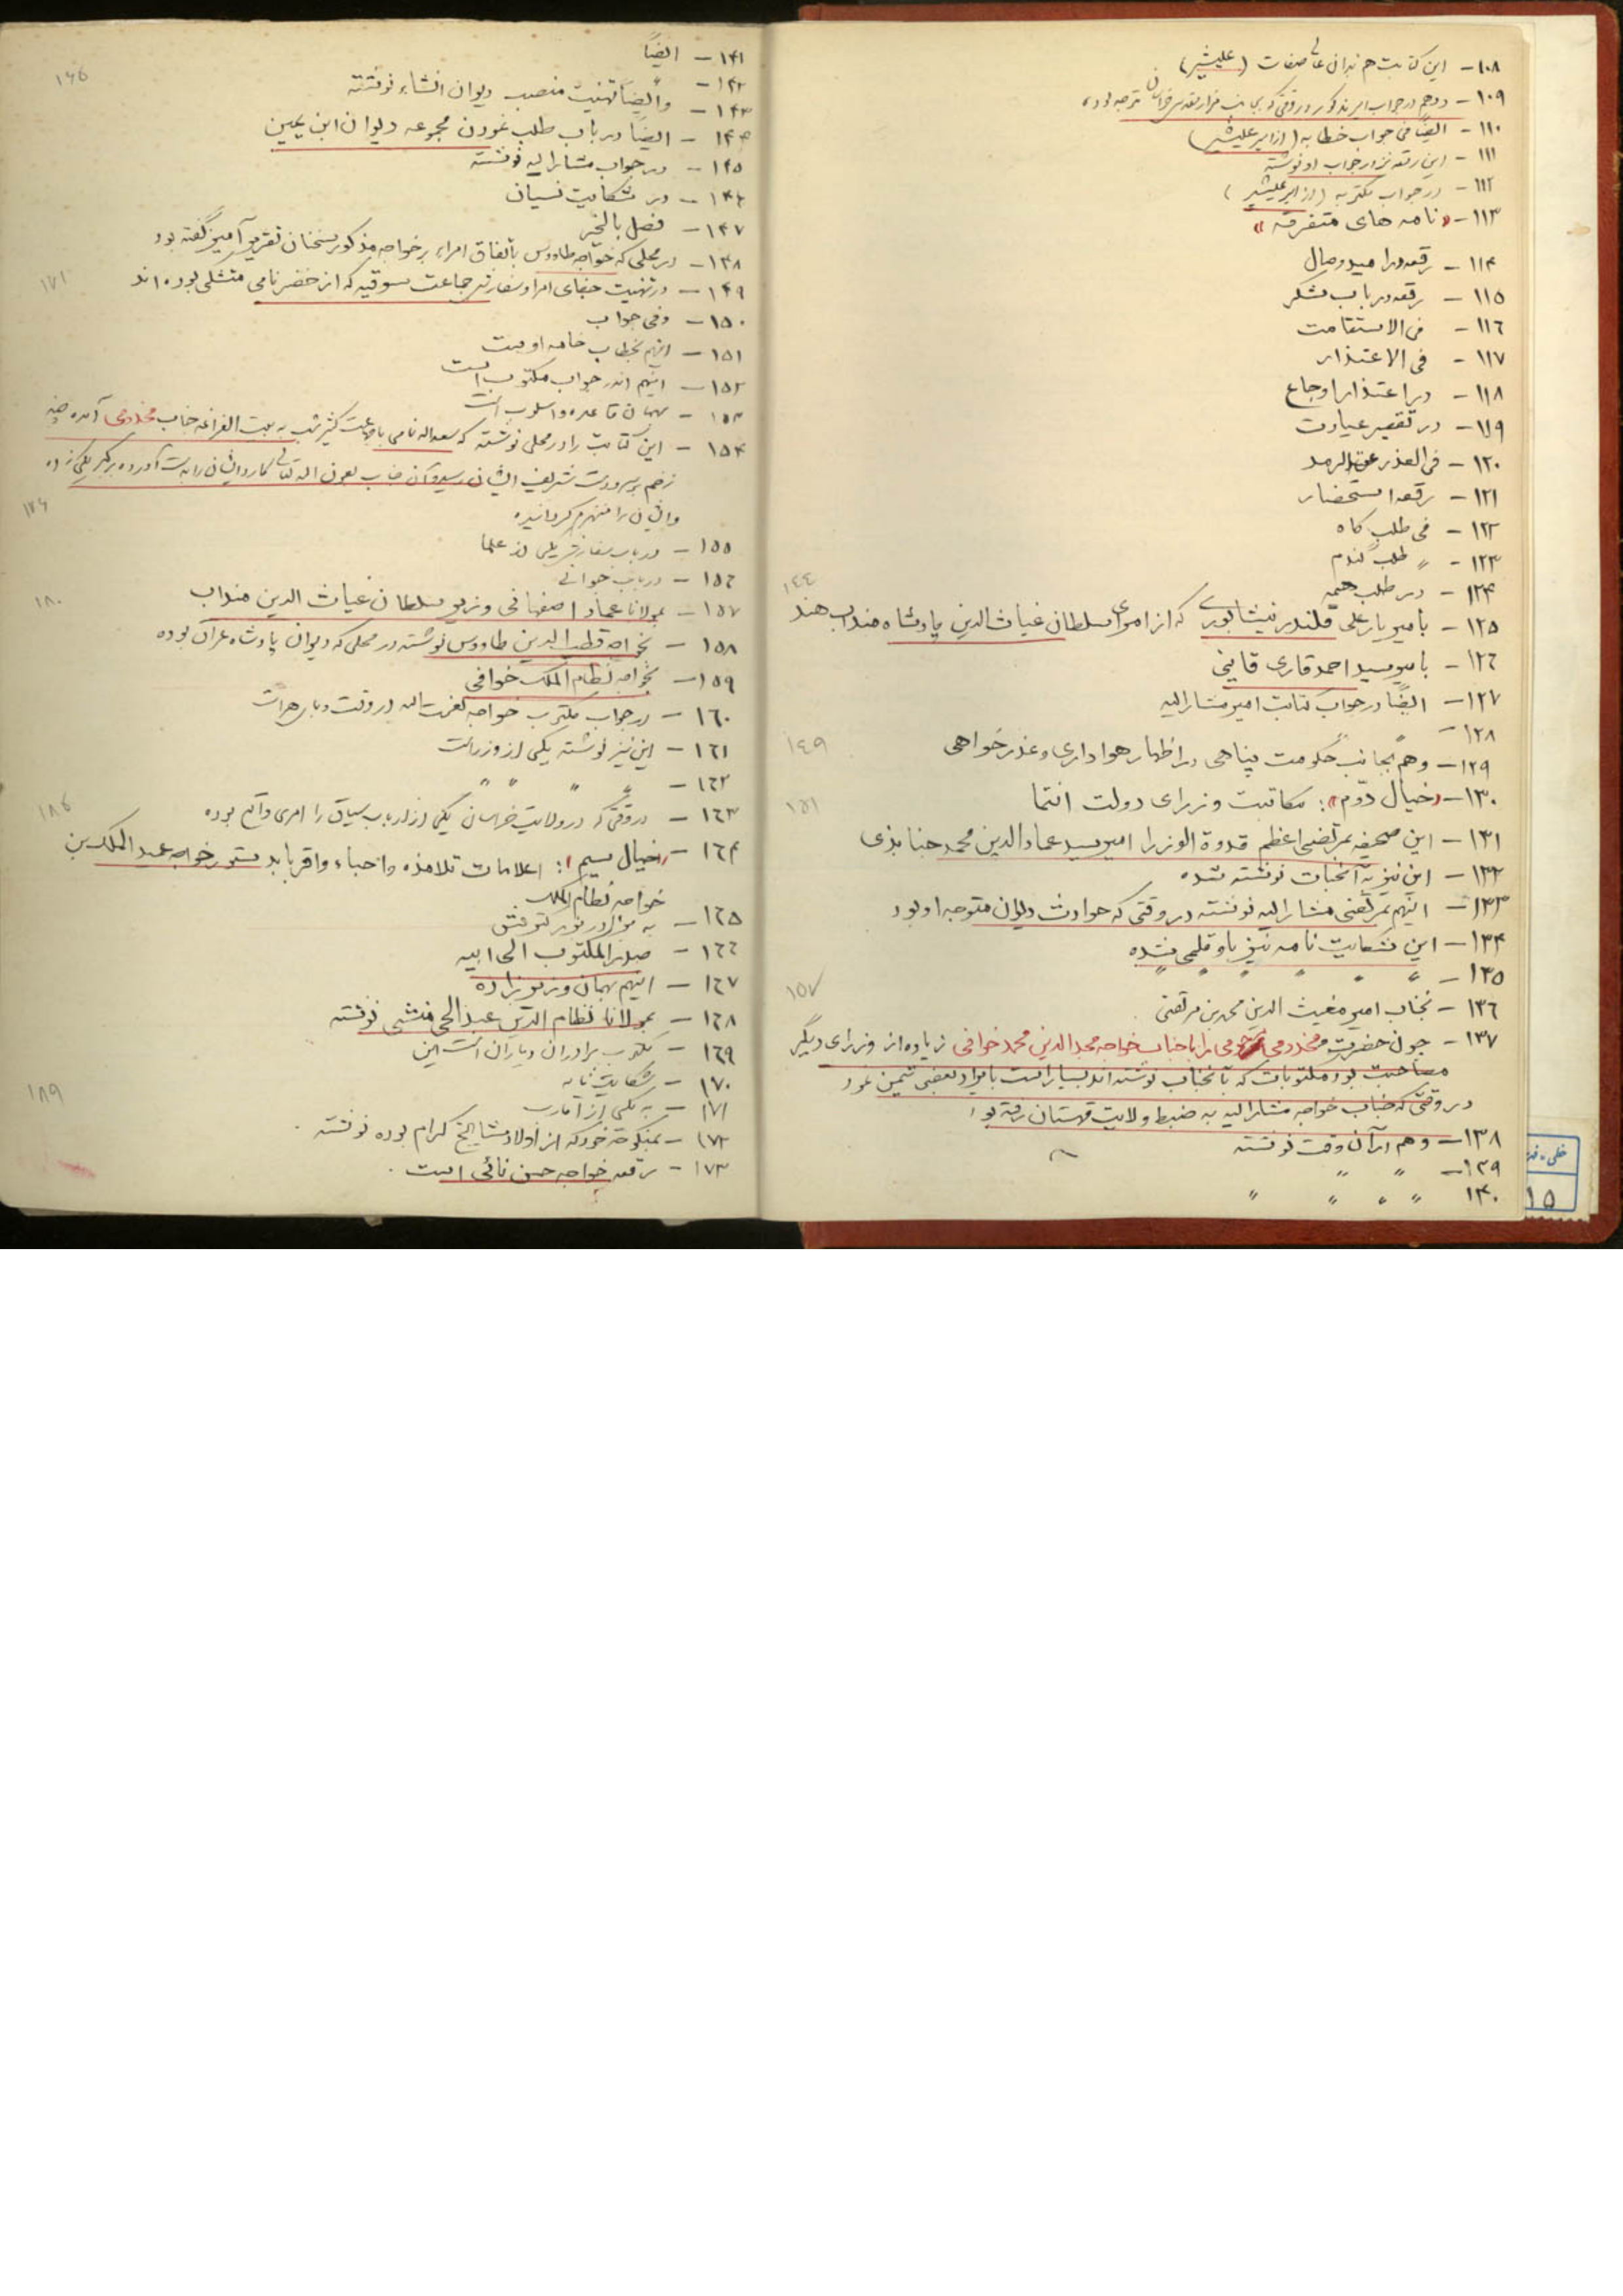 ۱۰۸ - این کتابت هم بدان عالی صفات (علیشیر)
۱۰۹ - در جواب امیر مذکور در وقتی که بجانب مزار متوجه بوده
۱۱۰ - ایضاً فی جواب خطابه (از امیر علیشیر)
۱۱۱ - این رقعه نیز در جواب او نوشته
۱۱۲ - در جواب مکتوبه (از امیر علیشیر)
۱۱۳ - «نامه های متفرقه»
۱۱۴ - رقعه در امید وصال
۱۱۵ - رقعه در باب تشکر
۱۱٦ - فی الاستقامت
۱۱۷ - فی الاعتذار
۱۱۸ - در اعتذار اوجاع
۱۱۹ - در تقصیر عیادت
۱۲۰ - فی العذر عن الرمد
۱۲۱ - رقعه استحضار
۱۲۲ - فی طلب کاه
۱۲۳ - " طلب گندم
۱۲۴ - در طلب خیمه
۱۴۴
۱۲۵ - بامیر یار علی قلندر نیشابوری که از امرای سلطان غیاث الدین پادشاه منداب هند
۱۲٦ - بامیر سید احمد قاری قاینی
۱۲۷ - ایضاً در جواب کتابت امیر مشارالیه
۱۲۸ - "
۱۲۹ - وهم بجانب حکومت پناهی در اظهار هواداری و عذرخواهی
۱۴۹
۱۳۰ - «خیال دوّم»: مکاتبت وزرای دولت انتما
۱۵۱
۱۳۱ - این صحیفه بمرتضی اعظم قدوة الوزرا امیر سید عمادالدین محمد جنابذی
۱۳۲ - این نیز به آنجناب نوشته شده
۱۳۳ - اینهم بمرتضی مشارالیه نوشته در وقتی که حوادث دیوان متوجه او بود
۱۳۴ - این شکایت نامه نیز باو قلمی شده
۱۳۵ - " " " " "
۱۵۷
۱۳٦ - بجناب امیر مغیث الدین محمد بن مرتضی
۱۳۷ - چون حضرت مخدومی مرحومی را با جناب خواجه مجدالدین محمد خوافی زیاده از وزرای دیگر
مصاحبت بود مکتوبات که بآنجناب نوشته اند بسیار است بایراد بعضی تیمن نمود
در وقتی که جناب خواجه مشارالیه به ضبط ولایت قهستان رفته بود
۱۳۸ - وهم در آن وقت نوشته
۱۳۹ - " "
۱۴۰ " " " "
۱۴۱ - ایضاً
۱۴۲ - "
۱۶۶
۱۴۳ - وایضاً تهنیت منصب دیوان انشاء نوشته
۱۴۴ - ایضاً در باب طلب نمودن مجموعه دیوان ابن یمین
۱۴۵ - در جواب مشارالیه نوشته
۱۴٦ - در شکایت نسیان
۱۴۷ - فصل بالخیر
۱۴۸ - در محلی که خواجه طاووس باتفاق امراء بر خواجه مذکور سخنان تقریر آمیز گفته بود
۱۷۱
۱۴۹ - در تهنیت جفای امرا و سفارش جماعت سوقیه که از خضر نامی متشکی بوده اند
۱۵۰ - وفی جواب
۱۵۱ - اینهم بخطاب خامه اوست
۱۵۲ - اینهم اندر جواب مکتوب است
۱۵۳ - بهمان قاعده و اسلوب است
۱۵۴ - این کتابت را در محلی نوشته که سعدالله نامی با جماعت کثیر شب به بیت الفراغه جناب مخدومی آمده چند
زخم بر سر و دست شریف ایشان رسید و آن جناب بعون اله تعالی کارد ایشان را بدست آورده بر یکی زده
و ایشان را منهزم گردانیده
۱۵۵ - در باب سفارش یکی از علما
۱۵٦ - در باب حوالی
۱۸۰
۱۵۷ - بمولانا عماد اصفهانی وزیر سلطان غیاث الدین منداب
۱۵۸ - بخواجه قطب الدین طاووس نوشته در محلی که دیوان پادشاه عراق بوده
۱۵۹ - بخواجه نظام الملک خوافی
۱٦۰ - در جواب مکتوب خواجه نعمت اله در وقت وبای هرات
۱٦۱ - این نیز نوشته یکی از وزراست
۱٦۲ - " " " "
۱۸۶
۱٦۳ - در وقتی که در ولایت خراسان یکی از ارباب سیاق را امری واقع بوده
۱٦۴ - «خیال سیم»: اعلامات تلامذه و احباء و اقربا بدستور خواجه عبدالملک بن
خواجه نظام الملک
۱٦۵ - به برادر نوشته
۱٦٦ - صدر المکتوب الی ابیه
۱٦۷ - اینهم بهمان وزیرزاده
۱٦۸ - بمولانا نظام الدین عبدالحی منشی نوشته
۱٦۹ - مکتوب برادران و یاران است این
۱۷۰ - شکایت نامه
۱۸۹
۱۷۱ - به یکی از اقارب
۱۷۲ - بمنکوحه خود که از اولاد مشایخ کرام بوده نوشته.
۱۷۳ - رقعه خواجه حسن نائی است.
۱۵